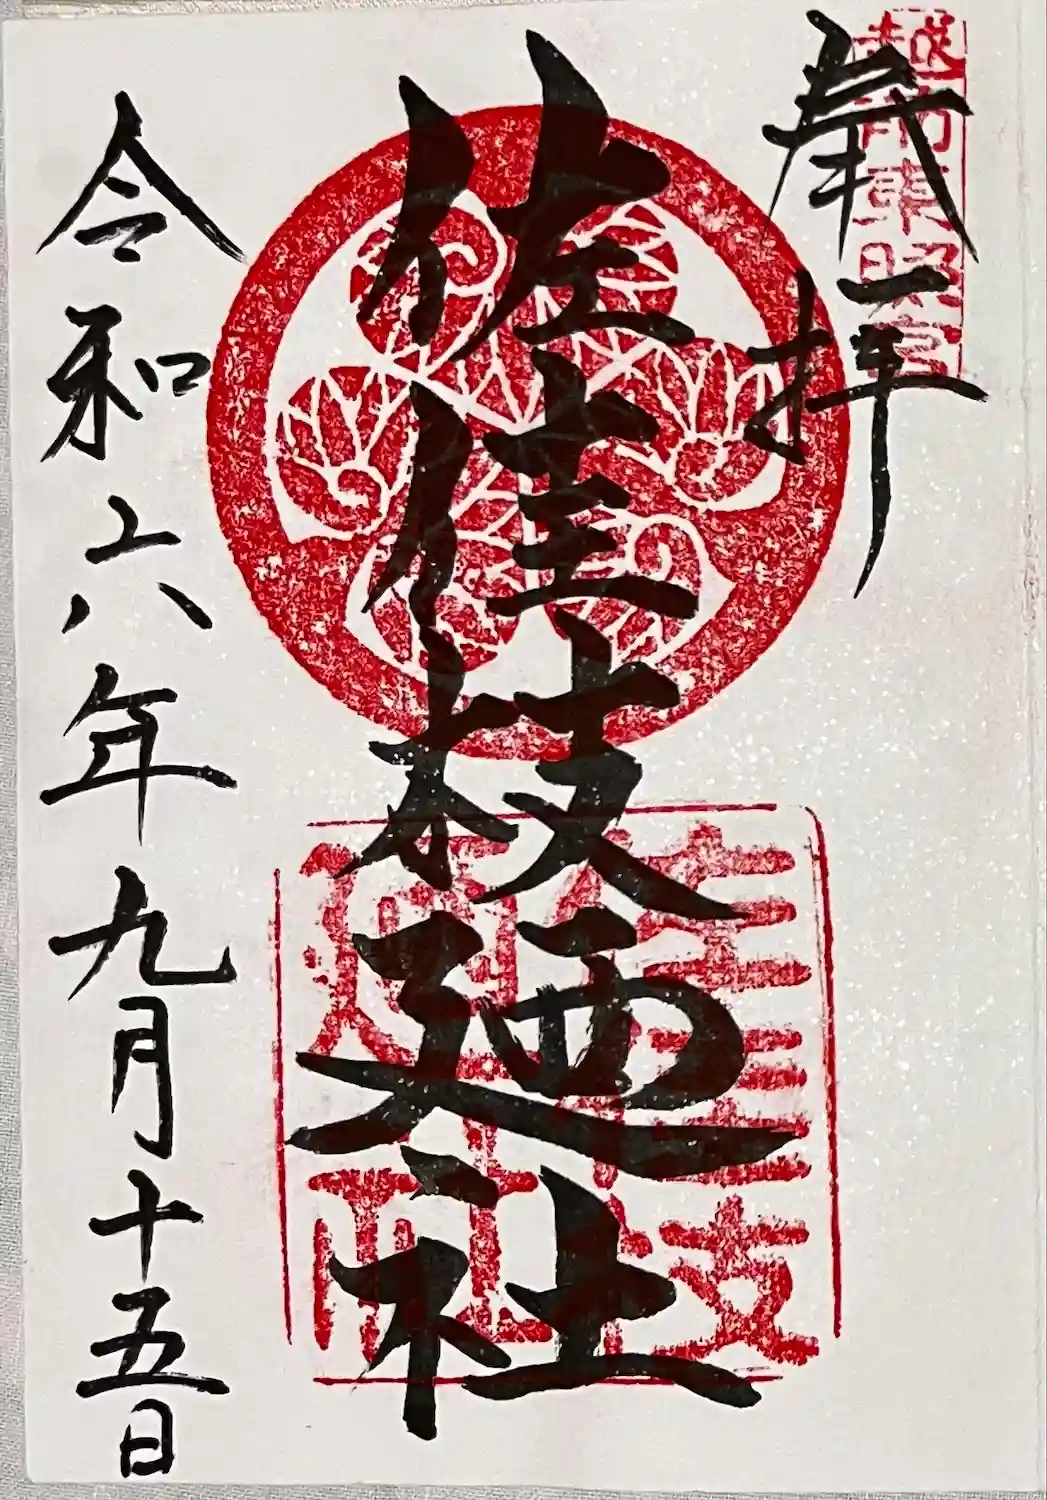 越前東照宮
奉拝
佐佳枝廼社
令和六年九月十五日